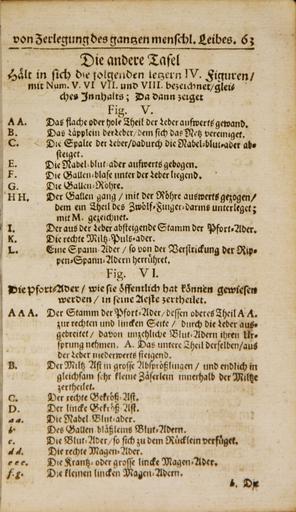 von Zerlegung des gantzen menschl. Leibes. 63
Die andere Tafel
Hält in sich die folgenden letzern IV. Figuren/
mit Num. V. VI VII. und VIII. bezeichnet/gleis
ches Innhalts; Da dann zeiget
Fig. V.
A A. Das flache oder hole Theil der Leber aufwerts gewand.
B. Das Läpplein der Leber/dem sich das Netz vereiniget.
C. Die Spalte der Leber/dadurch die Nabel-blut-ader ab-
steiget.
E. Die Nabel-blut-ader aufwerts gebogen.
F. Die Gallen-blase unter der Leber liegend.
G. Die Gallen-Röhre.
H H. Der Gallen gang/ mit der Röhre auswerts gezogen/
dem ein Theil des Zwölf-Finger-darms unterleget;
mit M. gezeichnet.
I. Der aus der Leber absteigende Stamm der Pfort-Ader.
K. Die rechte Miltz-Puls-ader.
L. Eine Spann Ader/ so von der Verstrickung der Rip-
pen-Spann-Adern herrühret.
Fig. VI.
Die Pfort-Ader/ wie sie öffentlich hat können gewiesen
werden/ in seine Aeste zertheilet.
A A A. Der Stamm der Pfort-Ader/dessen oberes Theil A A.
zur rechten und lincken Seite/ durch die Leber aus-
gebreitet/ davon unzehlige Blut-Adern ihren Ur-
sprung nehmen. A. Das untere Theil derselben/aus
der Leber niederwerts steigend.
B. Der Miltz Ast in grosse Absprößlingen/ und endlich in
gleichsam sehr kleine Zäserlein innerhalb der Miltze
zertheilet.
C. Der rechte Gekröß-Ast.
D. Der lincke Gekröß Ast.
aa. Die Nabel Blut-ader.
b Des Gallen bläßleins Blut-Adern.
c. Die Blut-Ader/so sich zu dem Rücklein verfüget.
dd. Die rechte Magen-Ader.
eee. Die Krantz- oder grosse lincke Magen-Ader.
f.g. Die kleinen lincken Magen-Adern.
b. Die